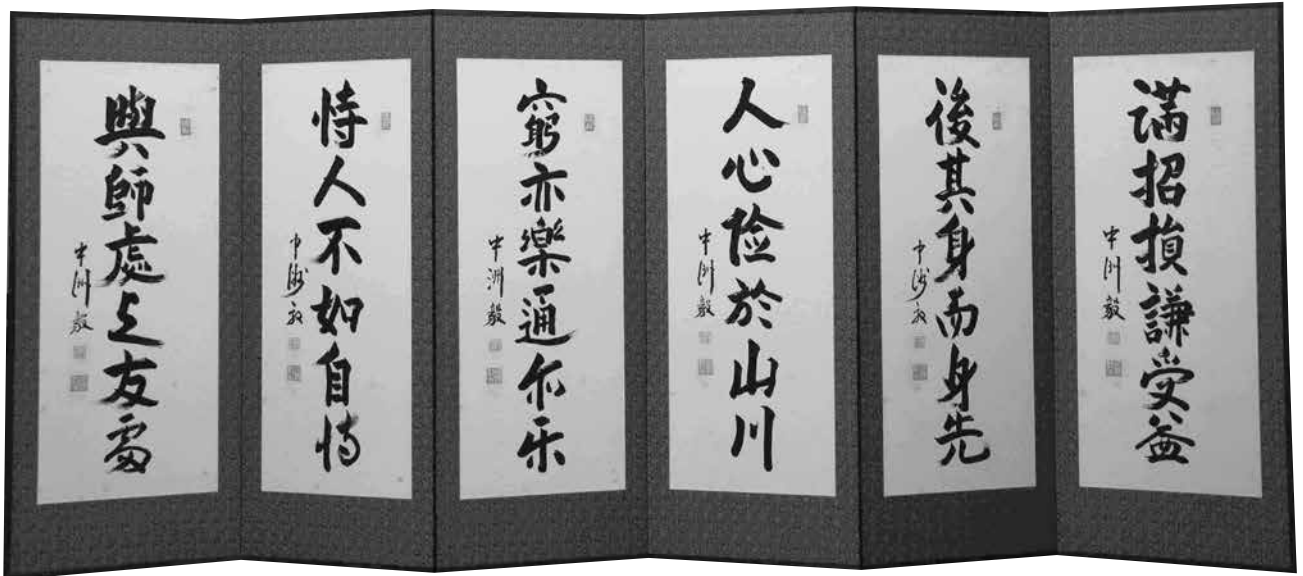 満招損謙受益
中洲毅
後其身而身先
中洲毅
人心険於山川
中洲毅
窮亦樂通亦乐
中洲毅
恃人不如自恃
中洲毅
與師處与友處
中洲毅